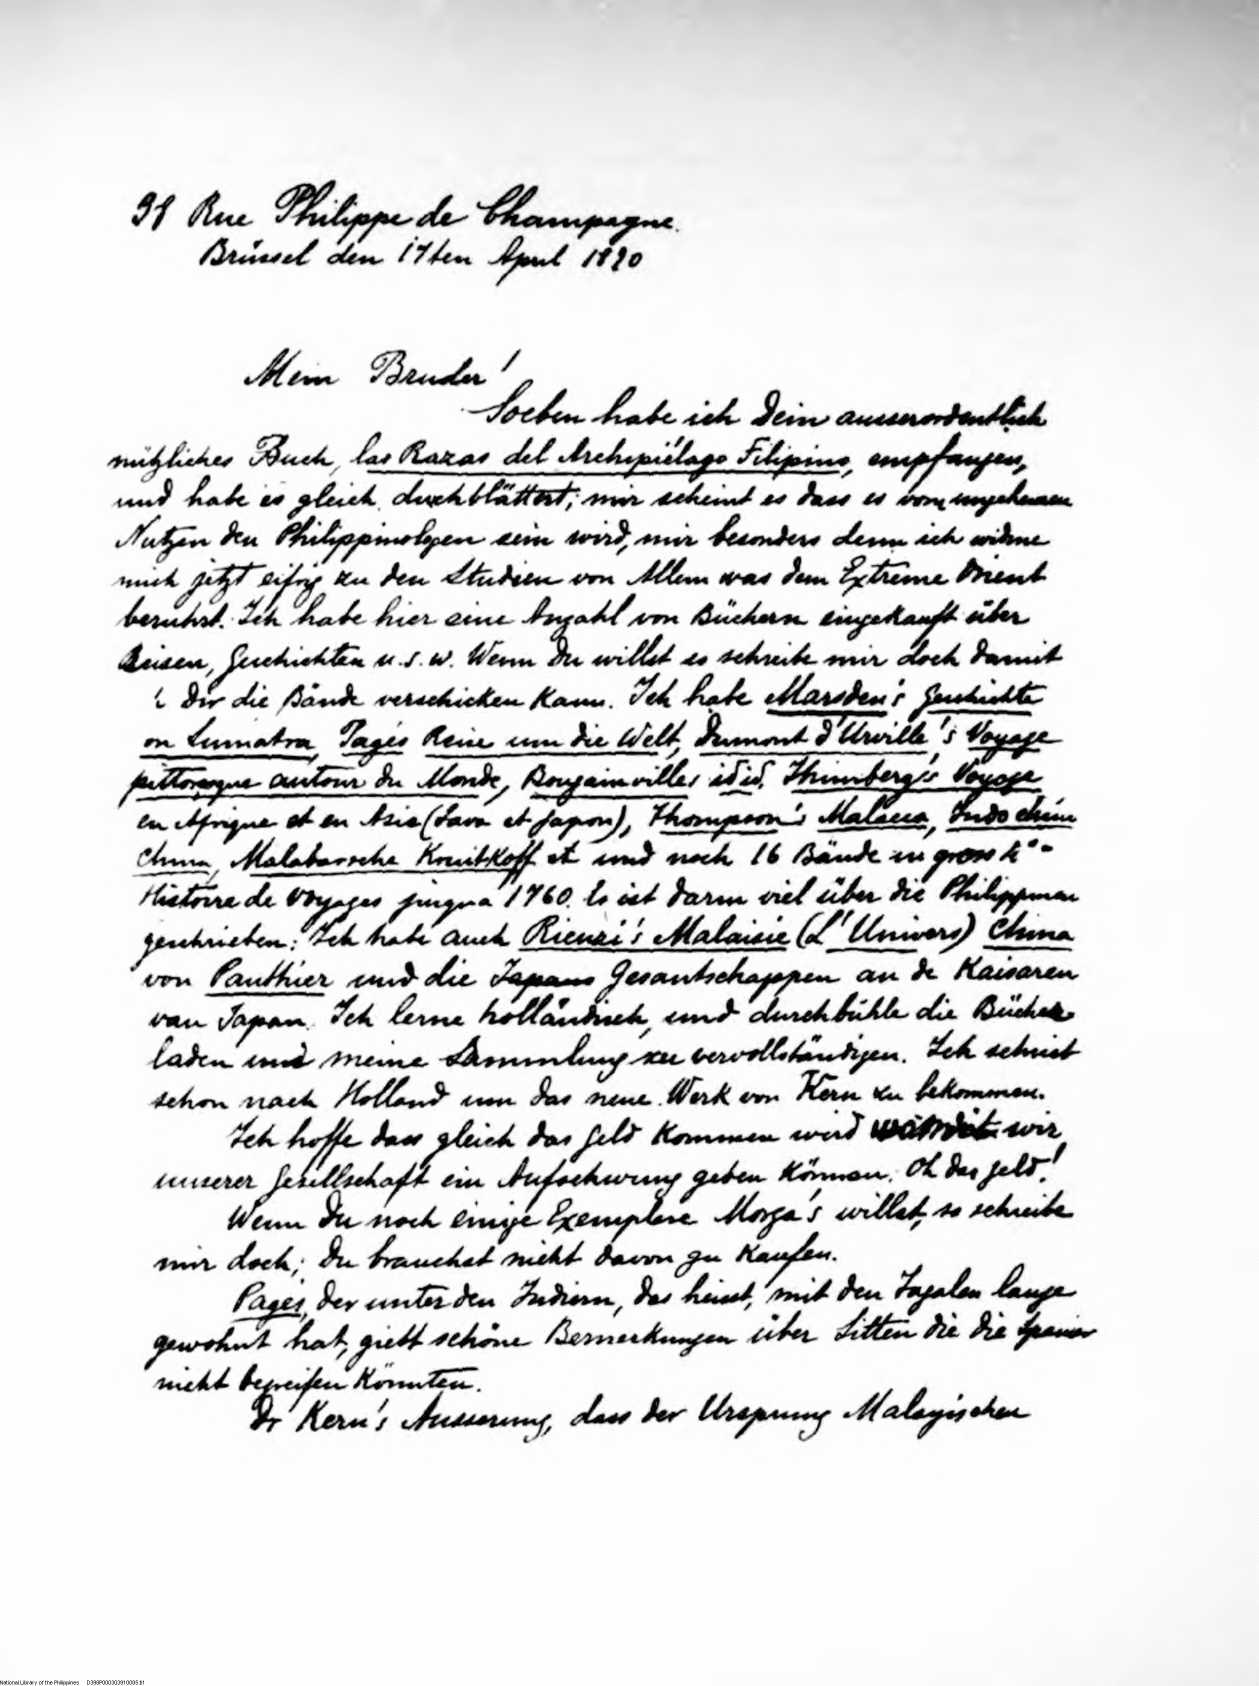 38 Rue Philippe de Champagne.
Brüssel den 17ten April 1890
Mein Bruder!
Soeben habe ich Dein ausserordentlich
nützliches Buch, las Razas del Archipiélago Filipino, empfangen,
und habe es gleich durchblättert; mir scheint es dass es vom ungeheuren
Nutzen den Philippinologen sein wird, mir besonders denn ich widme
mich jetzt eifrig zu den Studien von Allem was dem Extrême Orient
beruhrt. Ich habe hier eine Anzahl von Büchern eingekauft über
Reisen, Geschichten u.s.w. Wenn Du willst es schreibe mir doch damit
Dir die Bände verschicken kann. Ich habe Marsden's Geschichte
on Sumatra, Pagés Reise um die Welt, Dumont d'Urville's Voyage
pittoresque autour du Monde, Bougainvilles idid, Thunberg's Voyage
en Afrique et en Asie (Java et Japon), Thompson's Malacca, Indo chine
China, Malabarsche Kruitkoff et und noch 16 Bände in gross
Histoire de Voyages 1760. Es ist darin viel über die Philippinen
geschrieben: Ich habe auch Rienzi's Malaisie (L'Univers) China
von Pauthier und die Gesantschappen an de Kaisaren
van Japan. Ich lerne holländisch, und durchbühle die Bücher
laden und meine Sammlung zu vervollständigen. Ich schrieb
schon nach Holland um das neue Werk von Kern zu bekommen.
Ich hoffe dass gleich das Geld kommen wird wir
unserer Gesellschaft ein Aufschwung geben können. Oh das Geld!
Wenn Du noch einige Exemplare Morga's willst, so schreibe
mir doch; Du brauchst nicht davon zu kaufen.
Pagés, der unter den Indiern, das heisst, mit den Tagalen lange
gewohnt hat, giebt schöne Bemerkungen über Sitten die die Spanier
nicht begreifen könnten.
Dr Kern's Ausserung, dass der Ursprung Malayischen
National Library of the Philippines